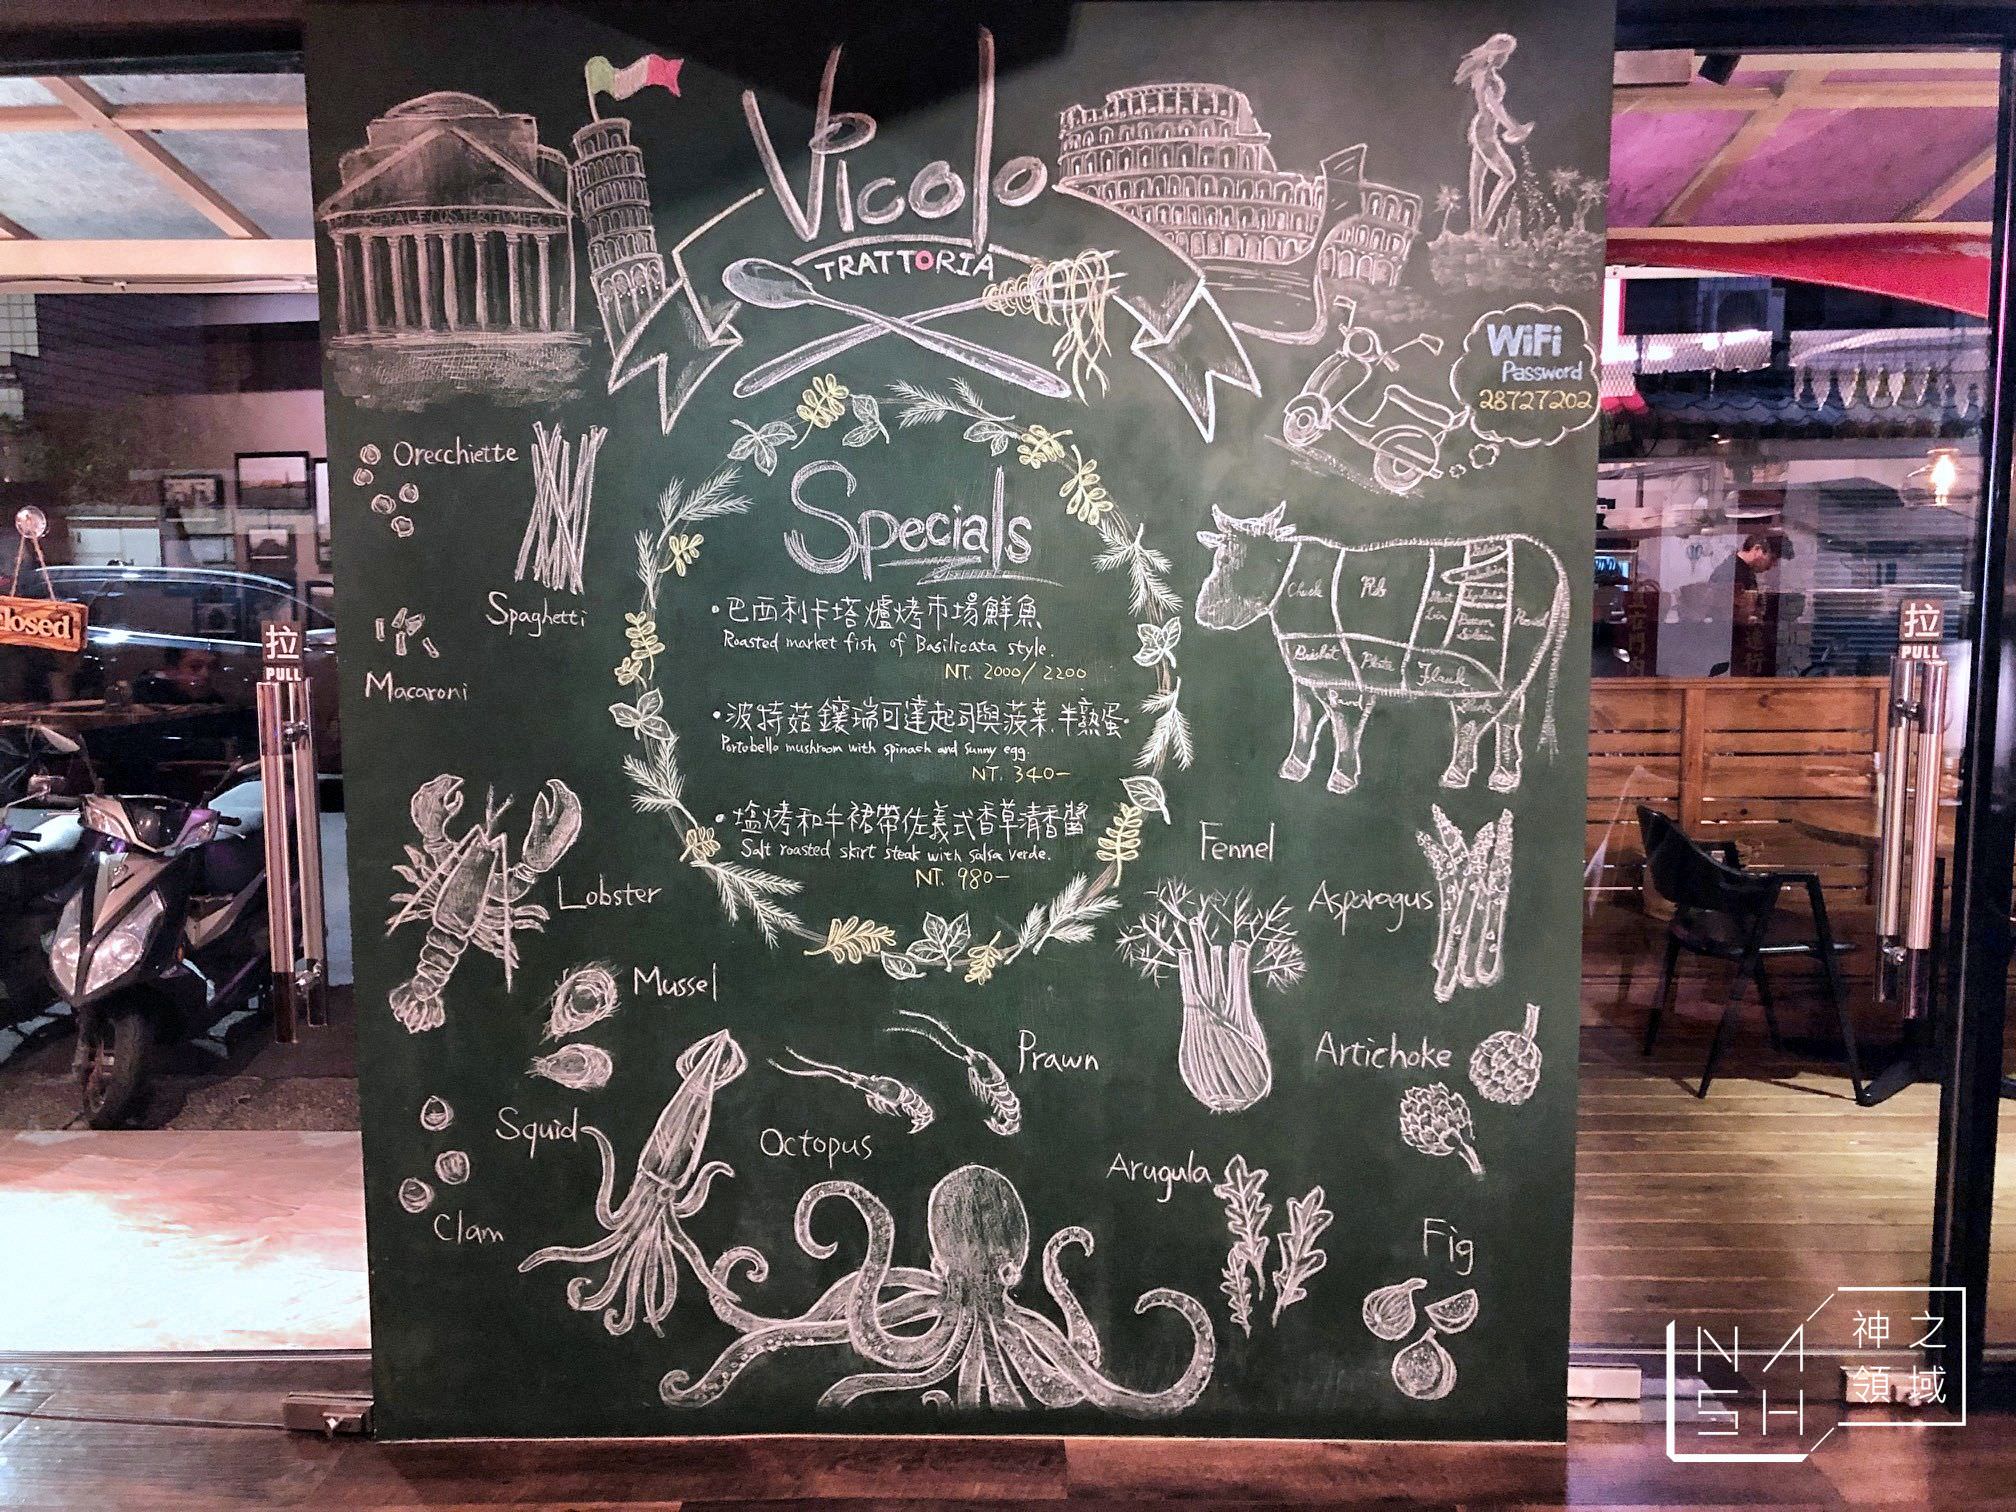 Vicolo
TRATTORIA
WiFi
Password
28727202
Orecchiette
Spaghetti
Macaroni
Specials
•巴西利卡塔爐烤市場鮮魚
Roasted market fish of Basilicata style.
NT. 2000/2200
•波特菇鑲瑞可達起司與菠菜.半熟蛋•
Portobello mushroom with spinach and sunny egg.
NT. 340-
•塩烤和牛裙帶佐義式香草清香醬
Salt roasted skirt steak with Salsa Verde.
NT. 980-
Chuck
Rib
Brisket
Plate
Flank
Round
Lobster
Mussel
Squid
Clam
Octopus
Prawn
Fennel
Asparagus
Artichoke
Arugula
Fig
closed
拉
PULL
拉
PULL
NASH
神之
領域